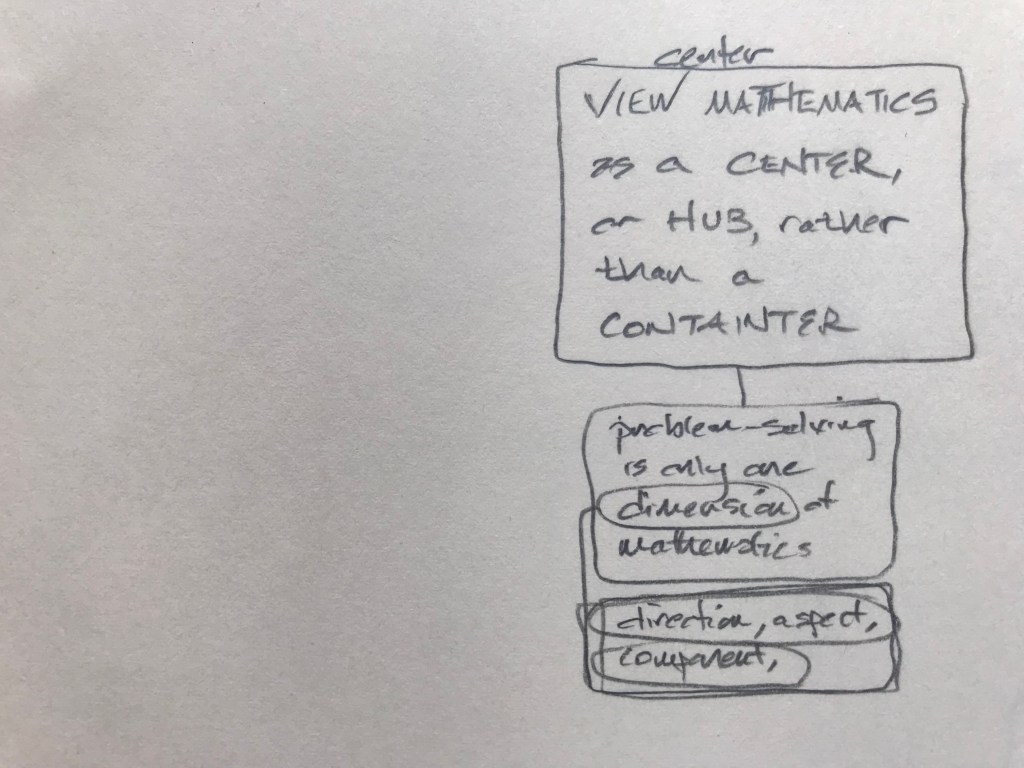 center
VIEW MATHEMATICS
as a CENTER,
or HUB, rather
than a
CONTAINTER
problem-solving
is only one
dimension of
mathematics
direction, aspect,
component,